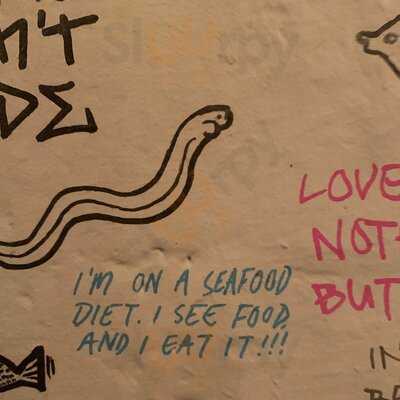 N'T
DE
I'M ON A SEAFOOD
DIET. I SEE FOOD
AND I EAT IT!!!
LOVE
NOT
BUT
IN